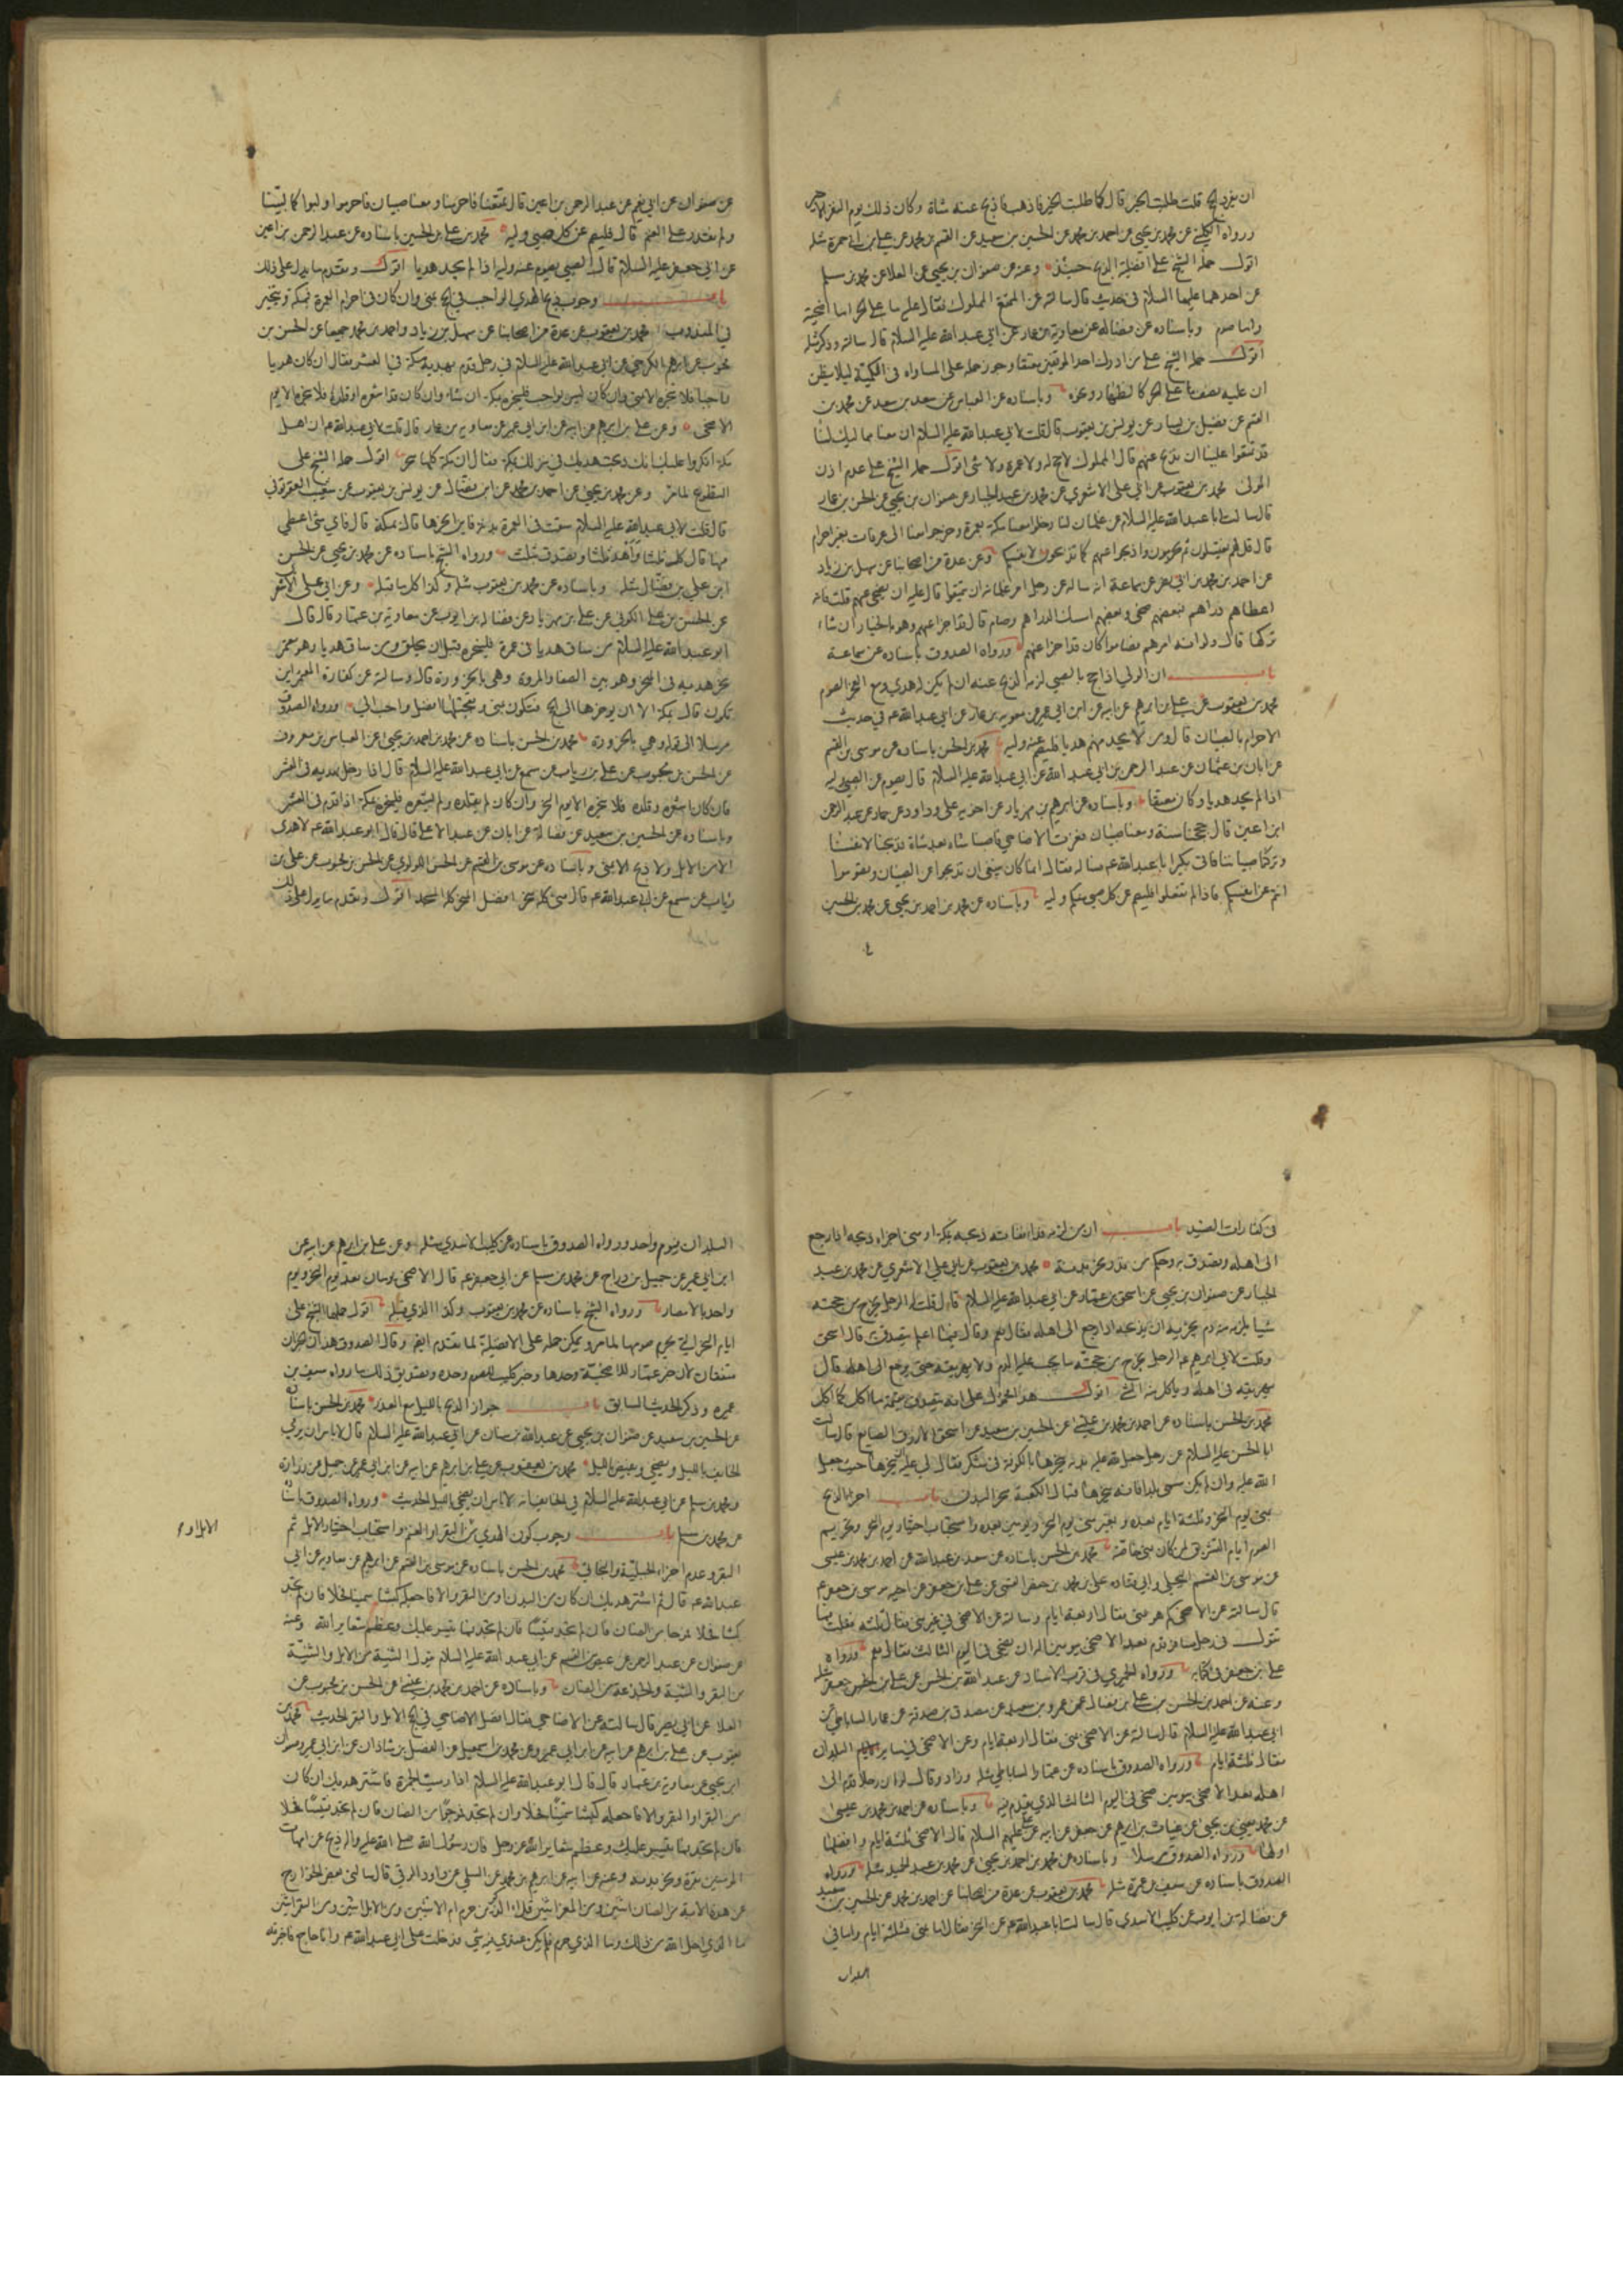 ان يفرد الحج قلت طلبت الخير قال كما طلبت الخير فاذهب فاذبح عنه شاة وكان ذلك يوم النفر الاخير
ورواه الكليني عن محمد بن يحيى عن احمد بن محمد عن الحسين بن سعيد عن القسم بن محمد عن علي بن ابي حمزة مثله
اقول حمله الشيخ على افضلية الذبح حينئذ وعنه عن صفوان بن يحيى عن العلا عن محمد بن مسلم
عن احدهما عليهما السلام في حديث قال سالته عن المتمتع المملوك فقال عليه ما على الحر اما اضحية
واما صوم وباسناده عن فضاله عن معاوية بن عمار عن ابي عبد الله عليه السلام قال سالته وذكر مثله
اقول حمله الشيخ على من ادرك احد الموقفين معتقا وجوز حمله على المساواه في الكمية ليلا يظن
ان عليه نصف ما على الحر كالظهار ونحوه وباسناده عن العباس عن سعد بن سعد عن محمد بن
القسم عن فضيل بن يسار عن يونس بن يعقوب قال قلت لابي عبد الله عليه السلام ان معنا مماليك لنا
قد تمتعوا علينا ان نذبح عنهم قال المملوك لا حج له ولا عمرة ولا شي اقول حمله الشيخ على عدم اذن
المولى محمد بن يعقوب عن ابي علي الاشعري عن محمد بن عبد الجبار عن صفوان بن يحيى عن الحسن بن عمار
قال سالت ابا عبد الله عليه السلام عن غلمان لنا دخلوا معنا مكة بعمرة وخرجوا معنا الى عرفات بغير احرام
قال قل لهم يغتسلون ثم يحرمون واذبحوا عنهم كما تذبحون لانفسكم وعن عدة من اصحابنا عن سهل بن زياد
عن احمد بن محمد بن ابي نصر عن سماعة انه ساله عن رجل امر غلمانه ان يتمتعوا قال عليه ان يضحي عنهم قلت فانه
اعطاهم دراهم فبعضهم ضحى وبعضهم امسك الدراهم وصام قال قد اجزا عنهم وهو بالخيار ان شاء
تركها قال ولو انه امرهم فصاموا كان قد اجزا عنهم ورواه الصدوق باسناده عن سماعة
باب ان الولي اذا حج بالصبي لزمه الذبح عنه ان لم يكن له هدي ومع العجز الصوم
محمد بن يعقوب عن علي بن ابرهيم عن ابيه عن ابن ابي عمير عن معويه بن عمار عن ابي عبد الله عم في حديث
الاحرام بالصبيان قال ومن لا يجد منهم هديا فليصم عنه وليه محمد بن الحسن باسناده عن موسى بن القسم
عن ابان بن عثمان عن عبد الرحمن بن ابي عبد الله عن ابي عبد الله عليه السلام قال يصوم عن الصبي وليه
اذا لم يجد هديا وكان متمتعا وباسناده عن ابرهيم بن مهزيار عن اخويه علي وداود عن حماد عن عبد الرحمن
ابن اعين قال حججنا سنة ومعنا صبيان فعزت الاضاحي فاصبنا شاة بعد شاة فذبحنا لانفسنا
وتركنا صبياننا فاتى بكير ابا عبد الله عم فساله فقال انما كان ينبغي ان تذبحوا عن الصبيان وتصوموا
انتم عن انفسكم فاذا لم تفعلوا فليصم عن كل صبي منكم وليه وباسناده عن محمد بن احمد بن يحيى عن محمد بن الحسين
عن صفوان عن ابي نعيم عن عبد الرحمن بن اعين قال تمتعنا فاحرمنا ومعنا صبيان فاحرموا ولبوا كما لبينا
ولم نقدر على الغنم قال فليصم عن كل صبي وليه محمد بن علي بن الحسين باسناده عن عبد الرحمن بن اعين
عن ابي جعفر عليه السلام قال الصبي يصوم عنه وليه اذا لم يجد هديا اقول وتقدم ما يدل على ذلك
باب وجوب ذبح الهدي الواجب في الحج بمنى وان كان في احرام العمرة فبمكة ويتخير
في المندوب محمد بن يعقوب عن عدة من اصحابنا عن سهل بن زياد واحمد بن محمد جميعا عن الحسن بن
محبوب عن ابرهيم الكرخي عن ابي عبد الله عليه السلام في رجل قدم بهديه مكة في العشر فقال ان كان هديا
واجبا فلا ينحره الا بمنى وان كان ليس بواجب فلينحره بمكة ان شاء وان كان قد اشعره او قلده فلا ينحره الا يوم
الاضحى وعن علي بن ابرهيم عن ابيه عن ابن ابي عمير عن معاويه بن عمار قال قلت لابي عبد الله عم ان اهل
مكة انكروا عليك انك ذبحت هديك في منزلك بمكة فقال ان مكة كلها منحر اقول حمله الشيخ على
التطوع لما مر وعن محمد بن يحيى عن احمد بن محمد عن ابن فضال عن يونس بن يعقوب عن شعيب العقرقوفي
قال قلت لابي عبد الله عليه السلام سقت في العمرة بدنة فاين انحرها قال بمكة قال فاي شي اعطي
منها قال كل ثلثا واهد ثلثا وتصدق بثلث ورواه الشيخ باسناده عن محمد بن يحيى عن الحسن
ابن علي بن فضال مثله وباسناده عن محمد بن يعقوب مثله وكذا كل ما قبله وعن ابي علي الاشعر
عن الحسن بن علي الكوفي عن علي بن مهزيار عن فضاله بن ايوب عن معاوية بن عمار قال قال
ابو عبد الله عليه السلام من ساق هديا في عمرة فلينحره قبل ان يحلق ومن ساق هديا وهو معتمر
نحر هديه في المنحر وهو بين الصفا والمروة وهي بالحزورة قال وسالته عن كفارة المعتمر اين
تكون قال بمكة الا ان يوخرها الى الحج فتكون بمنى وتعجيلها افضل واحب الي ورواه الصدوق
مرسلا الى قوله وهي بالحزورة محمد بن الحسن باسناده عن محمد بن احمد بن يحيى عن العباس بن معروف
عن الحسن بن محبوب عن علي بن رياب عن مسمع عن ابي عبد الله عليه السلام قال اذا دخل بهديه في العشر
فان كان اشعره وقلده فلا ينحره الا يوم النحر وان كان لم يقلده ولم يشعره فلينحره بمكة اذا قدم في العشر
وباسناده عن الحسين بن سعيد عن فضالة عن ابان عن عبد الاعلى قال قال ابو عبد الله عم لا هدي
الا من الابل ولا ذبح الا بمنى وباسناده عن موسى بن القسم عن الحسن اللولوي عن الحسن بن محبوب عن علي بن
رياب عن مسمع عن ابي عبد الله عم قال منى كله منحر وافضل المنحر كله المسجد اقول وتقدم ما يدل على ذلك
في كفارات الصيد باب ان من لزمه فداء ففاته ذبحه بمكة او منى اجزاه ذبحه اذا رجع
الى اهله وتصدق به وحكم من نذر نحر بدنة محمد بن يعقوب عن ابي علي الاشعري عن محمد بن عبد
الجبار عن صفوان بن يحيى عن اسحق بن عمار عن ابي عبد الله عليه السلام قال قلت له الرجل يخرج من حجته
شيا يلزمه منه دم يجزيه ان يذبحه اذا رجع الى اهله فقال نعم وقال فيما اعلم يتصدق به قال اسحق
وقلت لابي ابرهيم عم الرجل يخرج من حجته ما يجب عليه الدم ولا يهريقه حتى يرجع الى اهله قال
يهريقه في اهله وياكل منه الشي اقول هذا محمول على انه يتصدق بقيمة ما اكل كما ا كل
محمد بن الحسن باسناده عن احمد بن محمد بن عيسى عن الحسين بن سعيد عن اسحق الازرق الصايغ قال سالت
ابا الحسن عليه السلام عن رجل جعل لله عليه بدنة ينحرها بالكوفة في شكر فقال لي عليه ان ينحرها حيث جعل
الله عليه وان لم يكن سمى بلدا فانه ينحرها قبالة الكعبة منحر البدن باب اجزاء الذبح
بمنى يوم النحر وثلثة ايام بعده وبغير منى يوم النحر ويومين بعده واستحباب اختيار يوم النحر وتحريم
الصوم ايام التشريق لمن كان بمنى خاصة محمد بن الحسن باسناده عن سعد بن عبد الله عن احمد بن محمد بن عيسى
عن موسى بن القسم البجلي وابي قتاده علي بن محمد بن حفص القمي عن علي بن جعفر عن اخيه موسى بن جعفر عم
قال سالته عن الاضحى كم هو بمنى فقال اربعة ايام وسالته عن الاضحى في غير منى فقال ثلثه فقلت فما
تقول في رجل مسافر قدم بعد الاضحى بيومين اله ان يضحي في اليوم الثالث فقال نعم ورواه
علي بن جعفر في كتابه ورواه الحميري في قرب الاسناد عن عبد الله بن الحسن عن علي بن جعفر مثله
وعنه عن احمد بن الحسن بن علي بن فضال عن عمرو بن سعيد عن مصدق بن صدقة عن عمار الساباطي عن
ابي عبد الله عليه السلام قال سالته عن الاضحى بمنى فقال اربعة ايام وعن الاضحى في ساير البلدان
فقال ثلثة ايام ورواه الصدوق باسناده عن عمار الساباطي مثله وزاد وقال لو ان رجلا قدم الى
اهله بعد الاضحى بيومين ضحى في اليوم الثالث الذي يقدم فيه وباسناده عن احمد بن محمد بن عيسى
عن محمد بن يحيى عن غياث بن ابرهيم عن جعفر عن ابيه عن علي عليهم السلام قال الاضحى ثلثة ايام وافضلها
اولها ورواه الصدوق مرسلا وباسناده عن محمد بن احمد بن يحيى عن محمد بن عبد الحميد مثله ورواه
الصدوق باسناده عن سيف بن عميرة مثله محمد بن يعقوب عن عدة من اصحابنا عن احمد بن محمد عن الحسين بن سعيد
عن فضالة بن ايوب عن كليب الاسدي قال سالت ابا عبد الله عم عن النحر فقال اما بمنى فثلثة ايام واما في
البلدان
البلدان فيوم واحد ورواه الصدوق باسناده عن كليب الاسدي مثله وعن علي بن ابرهيم عن ابيه عن
ابن ابي عمير عن جميل بن دراج عن محمد بن مسلم عن ابي جعفر عم قال الاضحى يومان بعد يوم النحر ويوم
واحد بالامصار ورواه الشيخ باسناده عن محمد بن يعقوب وكذا الذي قبله اقول حملها الشيخ على
ايام النحر التي يحرم صومها لما مر ويمكن حمله على الافضلية لما تقدم ايضا وقال الصدوق هذان الخبران
متفقان لان خبر عمار للاضحية وحدها وخبر كليب للصوم وحده وتصديق ذلك ما رواه سيف بن
عميره وذكر الحديث السابق باب جواز الذبح بالليل مع العذر محمد بن الحسن باسناده
عن الحسين بن سعيد عن صفوان بن يحيى عن عبد الله بن سنان عن ابي عبد الله عليه السلام قال لا باس ان يرمي
الخايف بالليل ويضحي ويفيض بالليل محمد بن يعقوب عن علي بن ابرهيم عن ابيه عن ابن ابي عمير عن جميل عن زرارة
ومحمد بن مسلم عن ابي عبد الله عليه السلام في الخايف انه لا باس ان يضحي بالليل الحديث ورواه الصدوق باسناده
عن محمد بن مسلم باب وجوب كون الهدي من البقر او الغنم واستحباب اختيار الابل ثم
الابل او م
البقر وعدم اجزاء الجبلية والبخاتي محمد بن الحسن باسناده عن موسى بن القسم عن ابرهيم عن معاويه عن ابي
عبد الله عم قال ثم اشتر هديك ان كان من البدن او من البقر والا فاجعله كبشا سمينا فحلا فان لم تجد
كبشا فحلا فموجا من الضان فان لم تجد فتيسا فان لم تجد فما تيسر عليك وعظم شعاير الله وعنه
عن صفوان عن عبد الرحمن عن عيص بن القسم عن ابي عبد الله عليه السلام انه قال الثنية من الابل والثنيّة
من البقر والثنية والجذعة من الضان وباسناده عن احمد بن محمد بن عيسى عن الحسن بن محبوب عن
العلا عن ابي بصير قال سالته عن الاضاحي فقال افضل الاضاحي في الحج الابل والبقر الحديث محمد بن
يعقوب عن علي بن ابرهيم عن ابيه عن ابن ابي عمير وعن محمد بن اسمعيل عن الفضل بن شاذان عن ابن ابي عمير وصفوان
ابن يحيى عن معاوية بن عمار قال قال ابو عبد الله عليه السلام اذا رميت الجمرة فاشتر هديك ان كان
من البدن او البقر والا فاجعله كبشا سمينا فحلا وان لم تجد فموجا من الضان فان لم تجد فتيسا فحلا
فان لم تجد فما تيسر عليك وعظم شعاير الله عز وجل فان رسول الله صلى الله عليه واله ذبح عن امهات
المومنين بقرة ونحر بدنة وعنه عن ابيه عن ابرهيم بن محمد عن السلمي عن داود الرقي قال سالني بعض الخوارج
عن هذه الاية من الضان اثنين ومن المعز اثنين قل ءالذكرين حرم ام الانثيين ومن الابل اثنين ومن البقر اثنين
ما الذي احل الله من ذلك وما الذي حرم فلم يكن عندي فيه شي فدخلت على ابي عبد الله عم وانا حاج فاخبرته